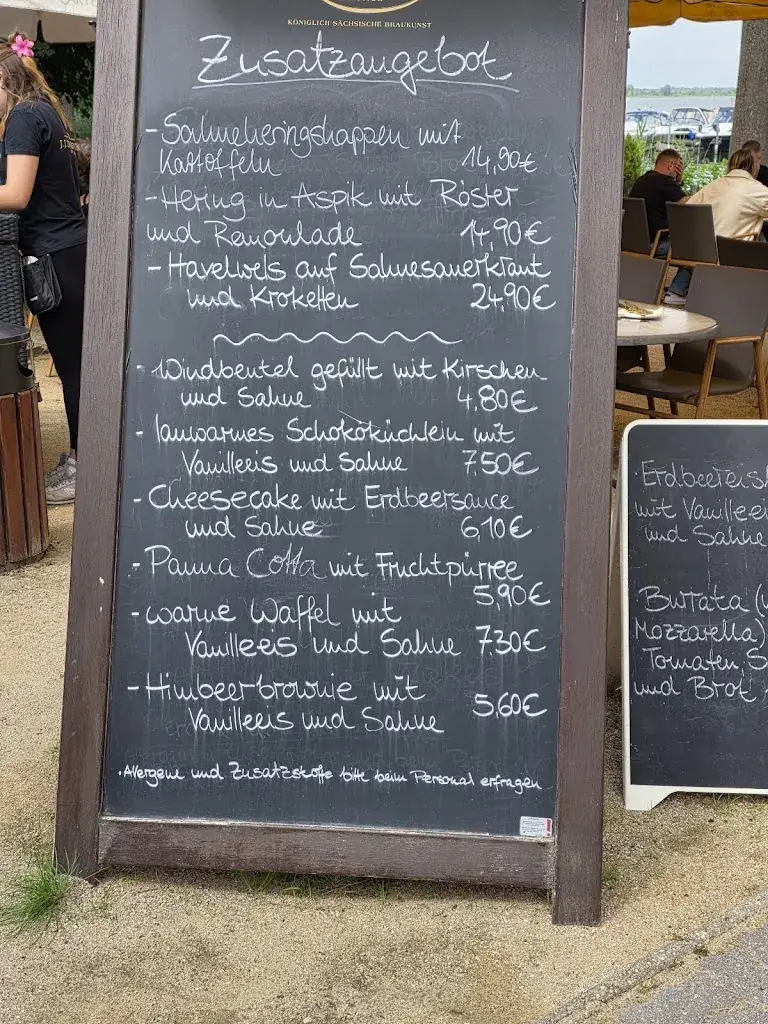 KÖNIGLICH SÄCHSISCHE BRAUKUNST
Zusatzangebot
- Sahneheringshappen mit
Kartoffeln 14,90€
- Hering in Aspik mit Röster
und Remoulade 14,90€
- Havelwels auf Sahnesauerkraut
und Kroketten 24,90€
- Windbeutel gefüllt mit Kirschen
und Sahne 4,80€
- lauwarmes Schokoküchlein mit
Vanilleeis und Sahne 7,50€
- Cheesecake mit Erdbeersauce
und Sahne 6,10€
- Panna Cotta mit Fruchtpürree
5,90€
- warme Waffel mit
Vanilleeis und Sahne 7,30€
- Himbeerbrownie mit
Vanilleeis und Sahne 5,60€
. Allergene und Zusatzstoffe bitte beim Personal erfragen
mit Vanilleei
und Sahne
Burrata
Mozzarella)
Tomaten,
und Brot